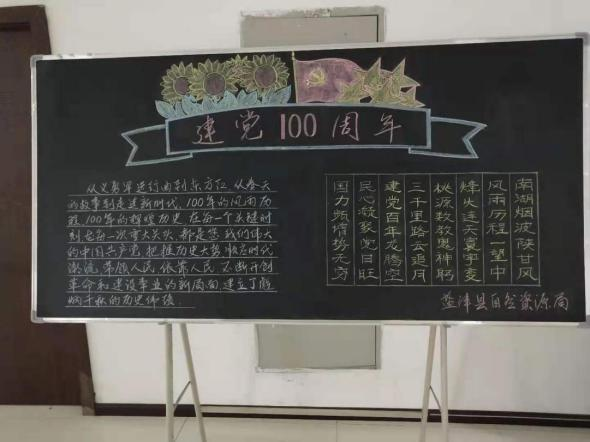 建党100周年
从义勇军进行曲到东方红 从春天
的故事到走进新时代，100年的风雨历
程 100年的辉煌历史 在每一个关键时
刻 在每一次重大关头 都是您 我们伟大
的中国共产党 把握历史大势 顺应时代
潮流 带领人民 依靠人民 不断开创
革命和建设事业的新局面 建立了彪
炳千秋的历史伟绩
南湖烟波陕甘风
风雨历程一望中
烽火连天寰宇变
桃源数教鬼神躬
三千里路云追月
建党百年龙腾空
民心凝聚党日旺
国力频增势无穷
盐津县自然资源局